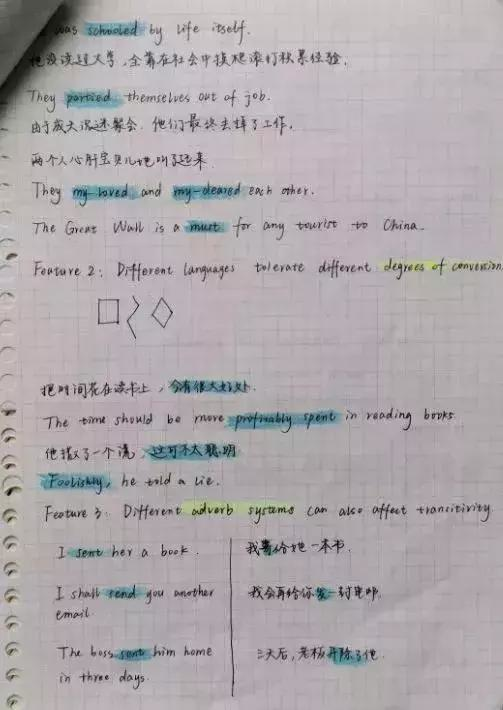 was schooled by life itself.
他没读过大学，全靠在社会中摸爬滚打积累经验.
They partied themselves out of job.
由于成天沉迷聚会，他们最终丢掉了工作.
两个人心肝宝贝儿地叫了起来
They my-loved and my-deared each other.
The Great Wall is a must for any tourist to China.
Feature 2: Different languages tolerate different degrees of conversion
把时间花在读书上，会有很大好处.
The time should be more profitably spent in reading books.
他撒了一个谎，这可不太聪明
Foolishly, he told a lie.
Feature 3: Different adverb systems can also affect transitivity
I sent her a book.
我寄给她一本书.
I shall send you another
email.
我会再给你发一封电邮.
The boss sent him home
in three days.
三天后，老板开除了他.